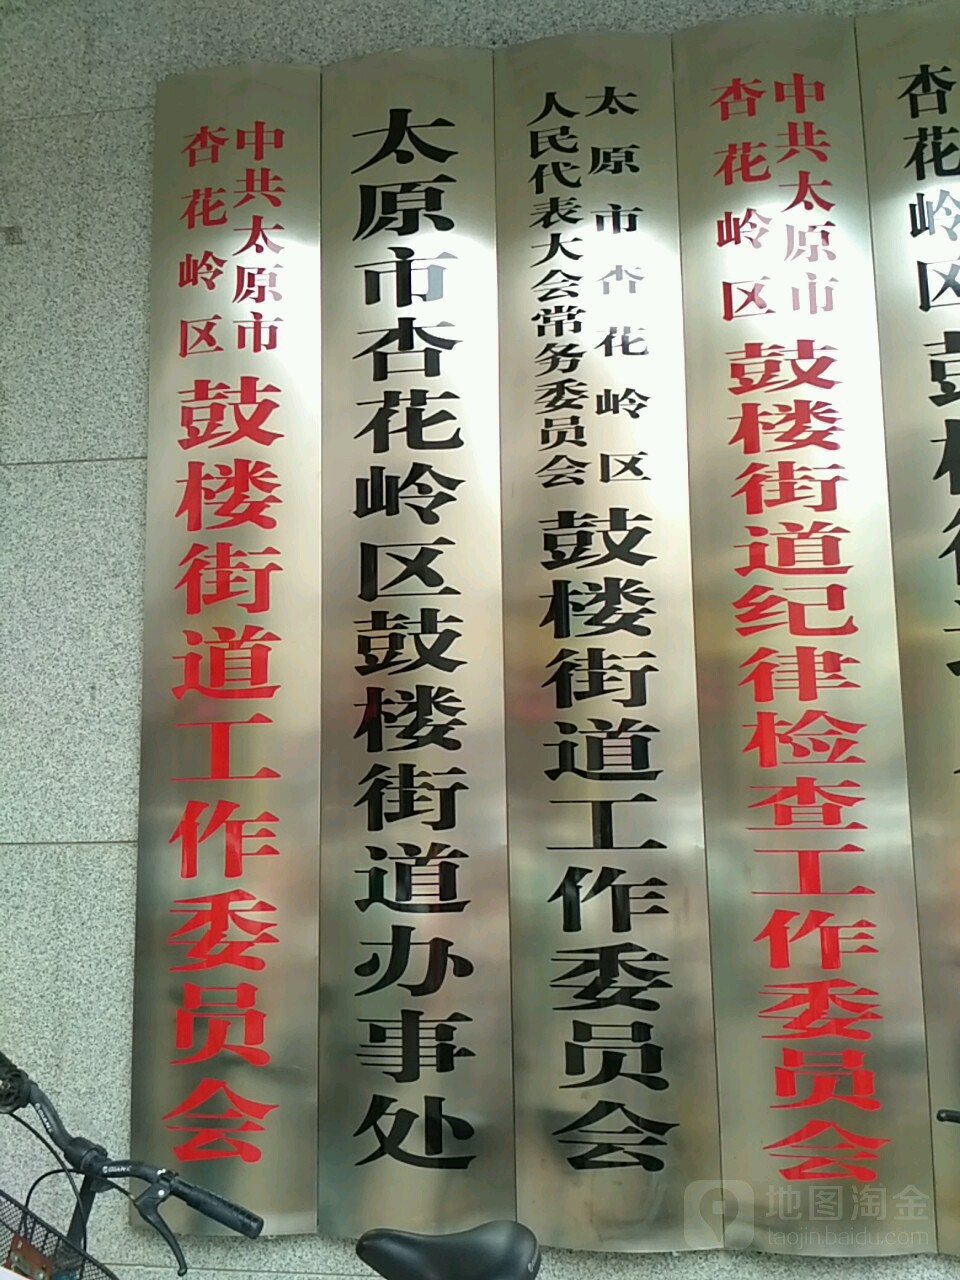 中共太原市
杏花岭区
鼓楼街道工作委员会
太原市杏花岭区鼓楼街道办事处
太原市杏花岭区
人民代表大会常务委员会
鼓楼街道工作委员会
中共太原市
杏花岭区
鼓楼街道纪律检查工作委员会
杏花岭区鼓楼街道
地图淘金
taojin.baidu.com